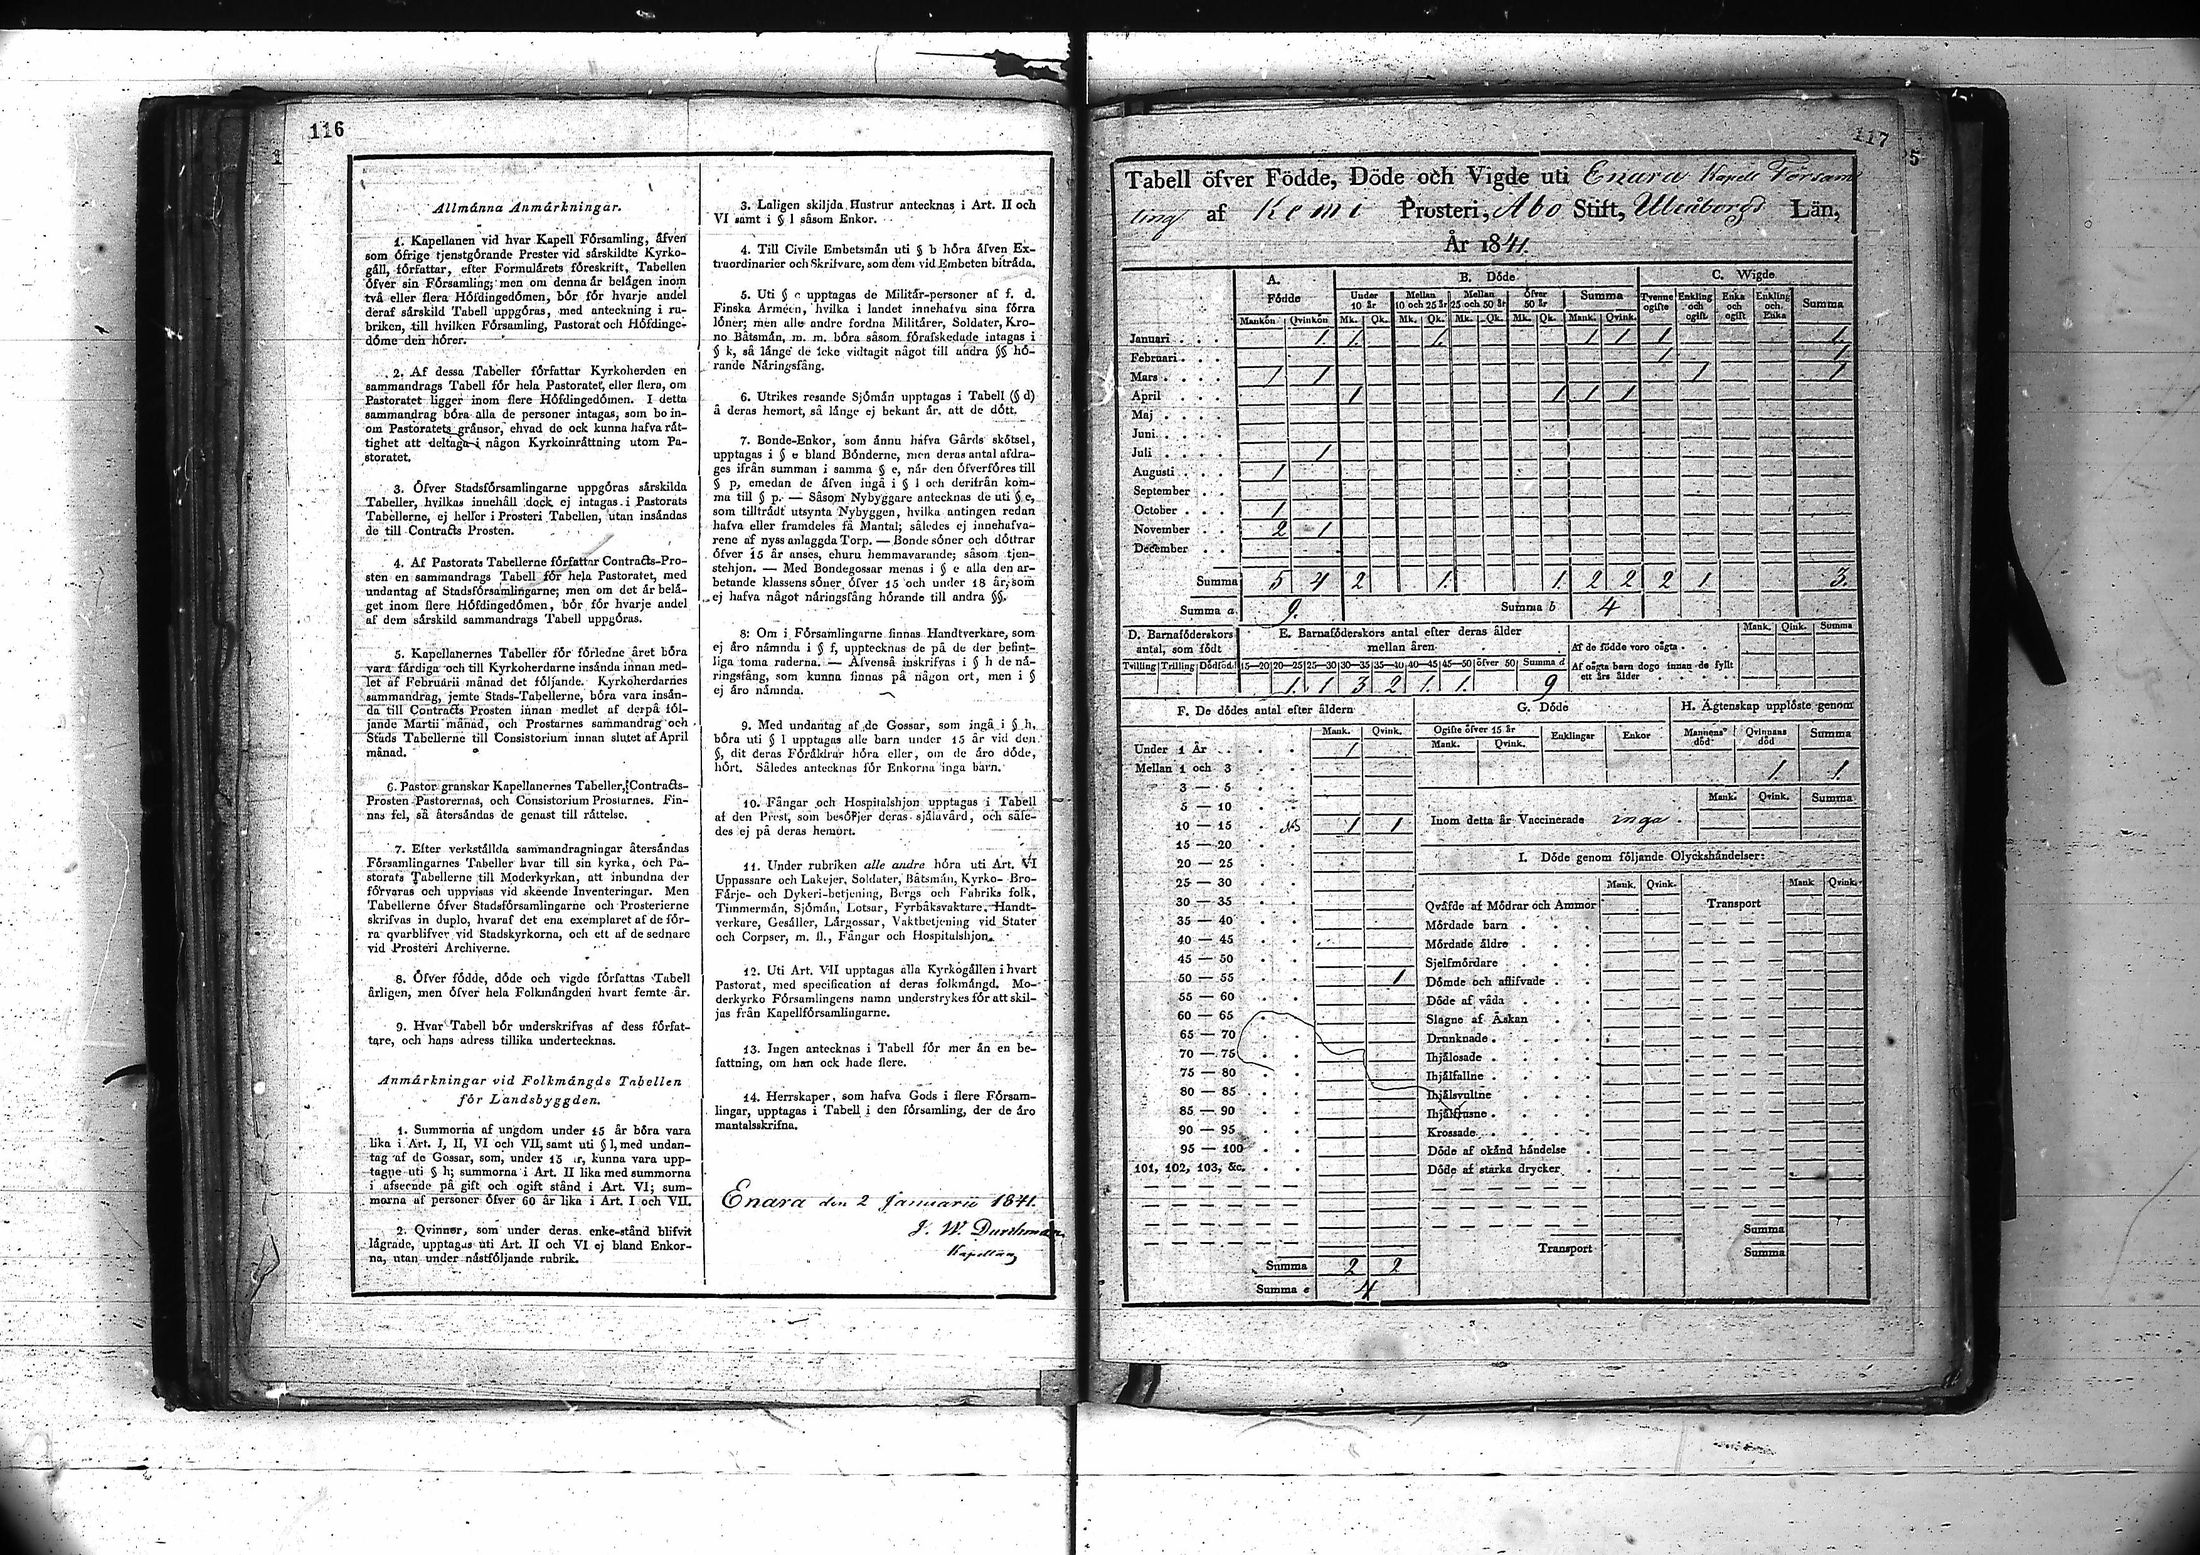 116
Allmánna Anmárkningar.
1. Kapellanen vid hvar Kapell Fórsamling, áfven
som ófrige tjenstgórande Prester vid sárskildte Kyrko-
gáll, fórfattar, efter Formulárets fóreskrift, Tabellen
ófver sin Fórsamling; men om denna år belágen inom
två eller flera Hófdingedómen, bór fór hvarje andel
deraf sárskild Tabell uppgóras, med anteckning i ru-
briken, till hvilken Fórsamling, Pastorat och Hófdinge-
dóme den hórer.
2. Af dessa Tabeller fórfattar Kyrkoherden en
sammandrags Tabell fór hela Pastoratet, eller flera, om
Pastoratet ligger inom flere Hófdingedómen. I detta
sammandrag bóra alla de personer intagas, som bo in-
om Pastoratets grånsor, ehvad de ock kunna hafva rát-
tighet att deltaga i någon Kyrkoinráttning utom Pa-
storatet.
3. Ófver Stadsfórsamlingarne uppgóras sårskilda
Tabeller, hvilkas innehåll dock ej intagas i Pastorats
Tabellerne, ej heller i Prosteri Tabellen, utan insándas
de till Contracts Prosten.
4. Af Pastorats Tabellerne fórfattar Contracts-Pro-
sten en sammandrags Tabell fór hela Pastoratet, med
undantag af Stadsfórsamlingarne; men om det år belå-
get inom flere Hófdingedómen, bór fór hvarje andel
af dem sårskild sammandrags Tabell uppgóras.
5. Kapellanernes Tabeller fór fórledne året bóra
vara fårdiga och till Kyrkoherdarne insånda innan med-
let af Februarii månad det fóljande. Kyrkoherdarnes
sammandrag, jemte Stads-Tabellerne, bóra vara insån-
da till Contracts Prosten innan medlet af derpå fól-
jande Martii månad, och Prostarnes sammandrag och
Stads Tabellerne till Consistorium innan slutet af April
månad.
6. Pastor granskar Kapellanernes Tabeller, Contracts-
Prosten Pastorernas, och Consistorium Prostarnes. Fin-
nas fel, så återsándas de genast till råttelse.
7. Efter verkstållda sammandragningar återsåndas
Fórsamlingarnes Tabeller hvar till sin kyrka, och Pa-
storats Tabellerne till Moderkyrkan, att inbundna der
fórvaras och uppvisas vid skeende Inventeringar. Men
Tabellerne ófver Stadsfórsamlingarne och Prosterierne
skrifvas in duplo, hvaraf det ena exemplaret af de fór-
ra qvarblifver vid Stadskyrkorna, och ett af de sednare
vid Prosteri Archiverne.
8. Ófver fódde, dóde och vigde fórfattas Tabell
årligen, men ófver hela Folkmángden hvart femte år.
9. Hvar Tabell bór underskrifvas af dess fórfat-
tare, och hans adress tillika undertecknas.
Anmárkningar vid Folkmángds Tabellen
fór Landsbyggden.
1. Summorna af ungdom under 15 år bóra vara
lika i Art. I, II, VI och VII, samt uti § l, med undan-
tag af de Gossar, som, under 15 år, kunna vara upp-
tagne uti § h; summorna i Art. II lika med summorna
i afseende på gift och ogift stånd i Art. VI; sum-
morna af personer ófver 60 år lika i Art. I och VII.
2. Qvinnor, som under deras enke-stånd blifvit
lågrade, upptagas uti Art. II och VI ej bland Enkor-
na, utan under nåstfóljande rubrik.
3. Laligen skiljda Hustrur antecknas i Art. II och
VI samt i § l såsom Enkor.
4. Till Civile Embetsmån uti § b hóra åfven Ex-
traordinarier och Skrifvare, som dem vid Embeten bitråda.
5. Uti § c upptagas de Militår-personer af f. d.
Finska Arméen, hvilka i landet innehafva sina fórra
lóner; men alle andre fordna Militårer, Soldater, Kro-
no Båtsmån, m. m. bóra såsom fórafskedade intagas i
§ k, så långe de icke vidtagit något till andra §§ hó-
rande Nåringsfång.
6. Utrikes resande Sjómån upptagas i Tabell (§ d)
å deras hemort, så långe ej bekant år, att de dótt.
7. Bonde-Enkor, som ånnu hafva Gårds skótsel,
upptagas i § e bland Bónderne, men deras antal afdra-
ges ifrån summan i samma § e, når den ófverfóres till
§ p, emedan de åfven ingå i § l och derifrån kom-
ma till § p. — Såsom Nybyggare antecknas de uti § e,
som tilltrådt utsynta Nybyggen, hvilka antingen redan
hafva eller framdeles få Mantal; således ej innehafva-
rene af nyss anlaggda Torp. — Bonde sóner och dóttrar
ófver 15 år anses, ehuru hemmavarande; såsom tjen-
stehjon. — Med Bondegossar menas i § e alla den ar-
betande klassens sóner ófver 15 och under 18 år, som
ej hafva något nåringsfång hórande till andra §§.
8. Om i Fórsamlingarne finnas Handtverkare, som
ej åro nåmnda i § f, upptecknas de på de der befint-
liga toma raderna. — Åfvenså inskrifvas i § h de nå-
ringsfång, som kunna finnas på någon ort, men i §
ej åro nåmnda.
9. Med undantag af de Gossar, som ingå i § h,
bóra uti § l upptagas alle barn under 15 år vid den
§, dit deras Fóråldrar hóra eller, om de åro dóde,
hórt. Således antecknas fór Enkorna inga barn.
10. Fångar och Hospitalshjon upptagas i Tabell
af den Prest, som besórjer deras sjålavård, och såle-
des ej på deras hemort.
11. Under rubriken alle andre hóra uti Art. VI
Uppassare och Lakejer, Soldater, Båtsmån, Kyrko- Bro-
Fårje- och Dykeri-betjening, Bergs och Fabriks folk,
Timmermån, Sjómån, Lotsar, Fyrbåksvaktare, Handt-
verkare, Gesåller, Lårgossar, Vaktbetjening vid Stater
och Corpser, m. fl., Fångar och Hospitalshjon.
12. Uti Art. VII upptagas alla Kyrkogållen i hvart
Pastorat, med specification af deras folkmångd. Mo-
derkyrko Fórsamlingens namn understrykes fór att skil-
jas från Kapellfórsamlingarne.
13. Ingen antecknas i Tabell fór mer ån en be-
fattning, om han ock hade flere.
14. Herrskaper, som hafva Gods i flere Fórsam-
lingar, upptagas i Tabell i den fórsamling, der de åro
mantalsskrifna.
Enara den 2 Januarii 1841.
J. W. Durchman
Kapellan
117
5
Tabell öfver Födde, Döde och Vigde uti Enara Kapell Försam
ling af Kemi Prosteri, Abo Stift, Uleåborgs Län,
År 1841.
A. Fódde B. Dóde C. Wigde
Under 10 år Mellan 10 och 25 år Mellan 25 och 50 år Öfver 50 år Summa Tvenne ogifte Enkling och ogift Enka och ogift Enkling och Enka Summa
Mankön Qvinkön Mk. Qk. Mk. Qk. Mk. Qk. Mk. Qk. Mank. Qvink.
Januari 1 1. 1. 1 1 1 1.
Februari 1 1
Mars 1 1 1 1
April 1 1 1 1
Maj
Juni
Juli 1
Augusti 1
September
October 1
November 2 1
December
Summa 5 4 2 1. 1. 2 2 2 1 3.
Summa a 9. Summa b 4
D. Barnafóderskors antal, som fódt
Tvilling Trilling Dódfód.
E. Barnafóderskors antal efter deras ålder mellan åren
15—20 20—25 25—30 30—35 35—40 40—45 45—50 öfver 50 Summa d
1. 1 3 2 1. 1. 9
Mank. Qink. Summa
Af de fódde voro oågta
Af oågta barn dogo innan de fyllt
ett års ålder
F. De dódes antal efter åldern
Mank. Qvink.
Under 1 År 1
Mellan 1 och 3
3 — 5
5 — 10
10 — 15 NB 1 1
15 — 20
20 — 25
25 — 30
30 — 35
35 — 40
40 — 45
45 — 50
50 — 55 1
55 — 60
60 — 65
65 — 70
70 — 75
75 — 80
80 — 85
85 — 90
90 — 95
95 — 100
101, 102, 103, &c.
Summa 2 2
Summa e 4
G. Dóde
Ogifte öfver 15 år Enklingar Enkor
Mank. Qvink.
H. Ågtenskap upplóste genom
Mannens dód Qvinnans dód Summa
1. 1.
Mank. Qvink. Summa
Inom detta år Vaccinerade inga.
I. Dóde genom fóljande Olyckshåndelser:
Mank. Qvink. Mank Qvink.
Qvåfde af Módrar och Ammor Transport
Mórdade barn
Mórdade åldre
Sjelfmórdare
Dómde och aflifvade
Dóde af våda
Slagne af Åskan
Drunknade
Ihjålosade
Ihjålfallne
Ihjålsvultne
Ihjålfrusne
Krossade
Dóde af okånd håndelse
Dóde af starka drycker
Summa
Transport Summa